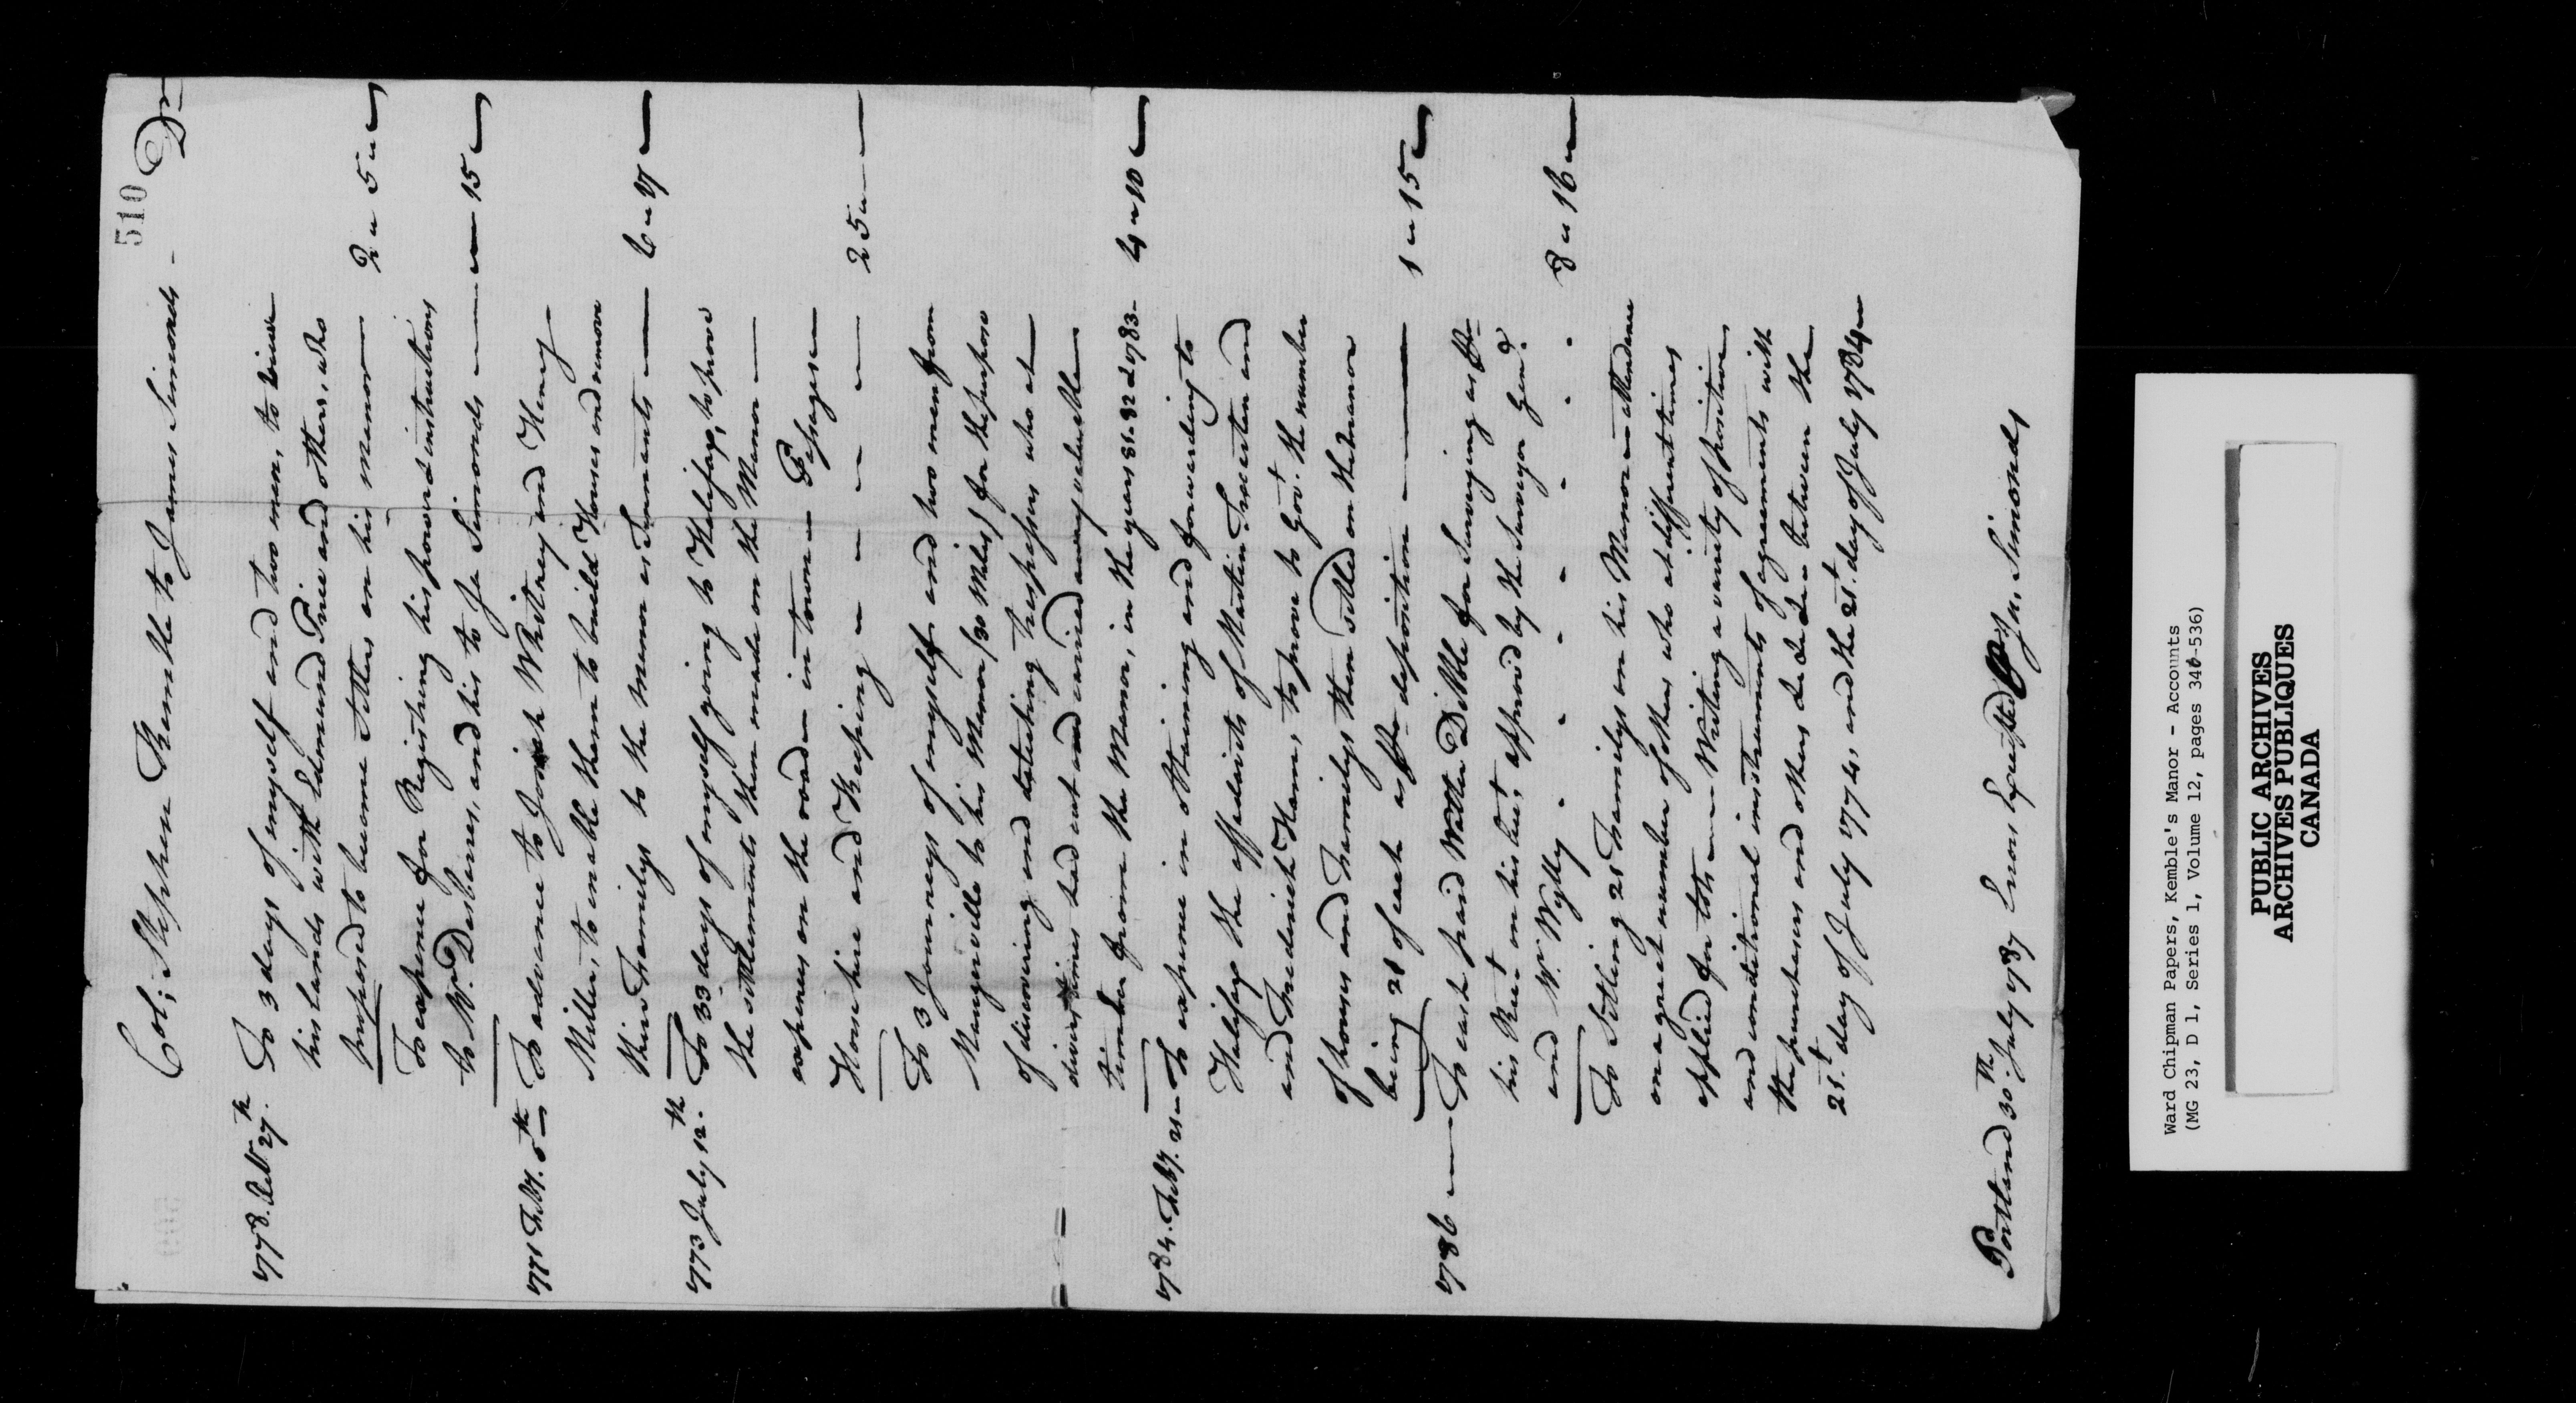 510
Col; Stephen Kemble to James Simonds - Dr
1778. Octr. 27th. To 3 days of myself and two men, to view
his lands with Edmund Price and others, who
proposed to become settlers on his manor — 2 " 5 "
To expence for Registring his power and instructions
to Mr. Desbarres, and his to Ja Simonds — " — 15
1771 Feby. 5th — To advance to Whitney and Henry
Miller, to enable them to build Houses and remove
their Familys to the Manor as Tennants — 6 " 7 —
1773 July 12th. To 33 days of myself going to Halifax, to prove
the settlements then made on the Manor —
expences on the road — in town — Passages —
Horse hire and Keeping " — — — — 25 " —
To 3 Journeys of myself and two men from
Maugerville to his Manor (30 Miles) for the purpose
of discovering and detecting trespassers who at
divirs times had cut and carried away valuable
timber from the Manor, in the years 81. 82 & 1783 - 4 " 10
1784. Feby. 21 — To expence in obtaining and forwarding to
Halifax the affidavits of Martin Trecarten and
and Fredirick Ham, to prove to Govt. the number
of houses and Familys then settled on the Manor
being 21 of each as per deposition — 1 " 15
1786 — To cash paid Walter Dibble for Surveying as per
his Rect. on his acct. approvd by the Surveyor Genl.
and W. Wylly - - - - - - 8 " 16 "
To Settling 21 Familys on his Manor — attendance
on a great number of others who at different times
applied for lots — Writing a variety of position
and conditional instruments of agreements with
the purchasers and others &c &c &c between the
21.t day of July 1774, and the 21.t day of July 1784 —
Portland 30th. July 1787 Errors Excepted Ja. Simonds
Ward Chipman Papers, Kemble's Manor - Accounts
(MG 23, D 1, Series 1, Volume 12, pages 346-536)
PUBLIC ARCHIVES
ARCHIVES PUBLIQUES
CANADA